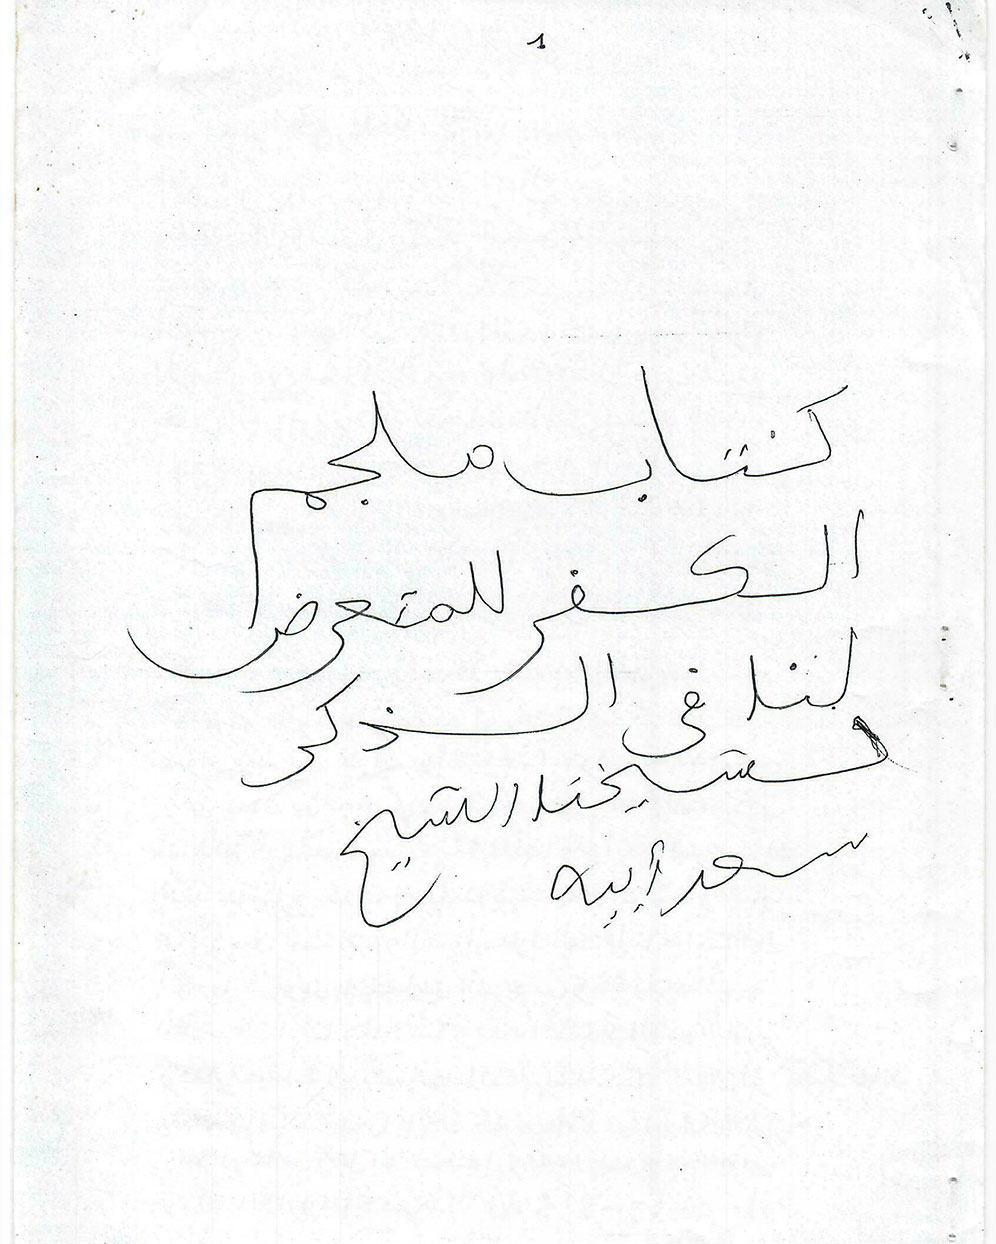 1
كتاب ملجم
الكفر للمتعرض
لنا فى الذكر
لشيخنا الشيخ
سعد أبيه